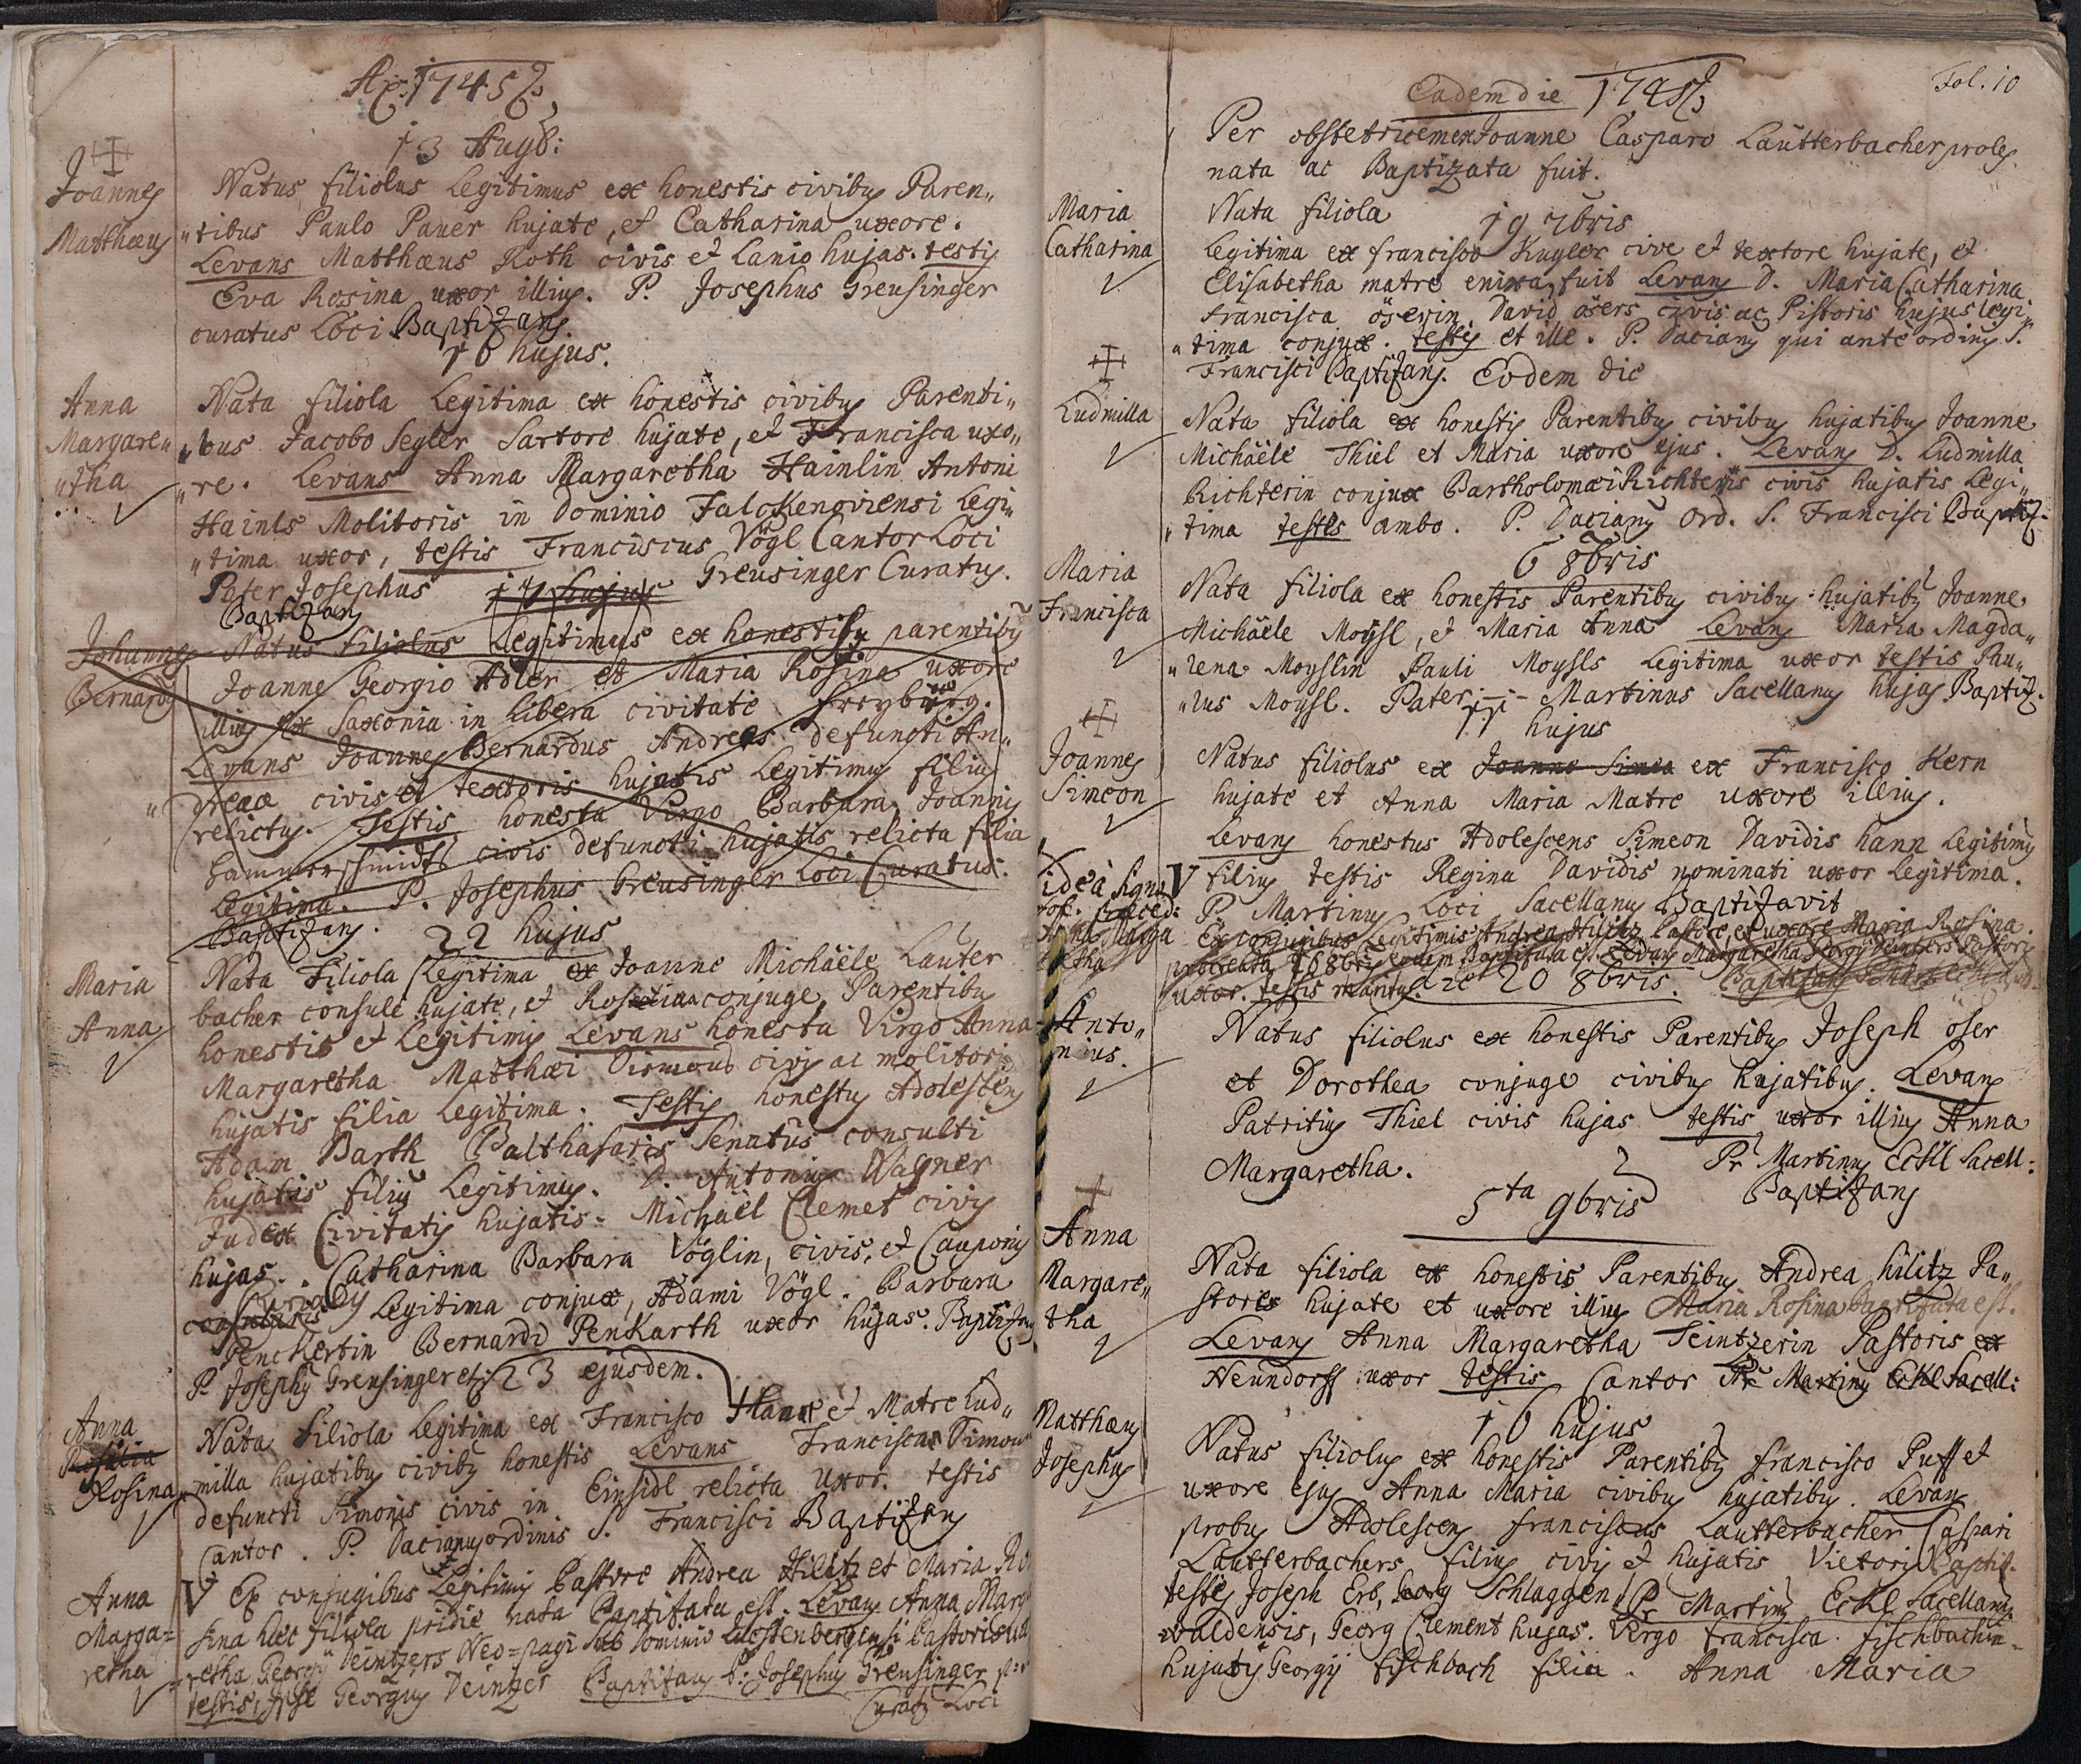 Ao: 1745
13 Augb:
Joannes
Matthæus
Natus filiolus Legitimus ex honestis civibus Paren„
„tibus Paulo Paüer hujate, et Catharina uxore.
Levans Matthæus Roth civis et Lanio hujas. testis
Eva Rosina uxor illius. P. Josephus Greusinger
curatus Loci Baptizans.
16 hujus.
Anna
Margare„
„tha
Nata filiola Legitima ex honestis civibus Parenti„
„bus Jacobo Segler Sartore hujate, et Francisca uxo„
„re. Levans Anna Margaretha Hainlin Antoni
Hainls Molitoris in Dominio Legi„
„tima uxor, testis Franciscus Vögl Cantor Loci
Pater Josephus Greusinger Curatus.
Baptizans
17 hujus
Johannes
Bernardus
Natus filiolus Legitimus ex honestibus parentibus
Joanne Georgio Adler et Maria Rosina uxore
illius ex Saxonia in Libera civitate Freyburg.
Levans Joannes Bernardus Andreas defuncti An„
„dreae civis et textoris hujatis Legitimus filius
relictus. Testis honesta Virgo Barbara, Joannis
Hammerschmidts civis defuncti hujatis relicta filia
Legitima. P. Josephus Greusinger Loci Curatus.
Baptizans.
22 hujus
Maria
Anna
Nata Filiola Legitima ex Joanne Michäele Lauter
bacher consule hujate, et Rosina conjuge, Parentibus
honestis et Legitimis Levans honesta Virgo Anna
Margaretha Matthæi civis ac molitoris
hujatis filia Legitima. Testis honestus Adolescens
Adam Barth Balthasaris Senatûs consulti
hujatis filius Legitimus. D. Antonius Wagner
Judex Civitatis hujatis. Michäel Clemet civis
hujas. Catharina Barbara Vöglin, civis, et Cauponis
Legitima conjux, Adami Vögl. Barbara
Penckertin Bernardi Penkarth uxor hujas. Baptizans
P. Josephus Greusinger
23 ejusdem.
Anna
Rosalia
Rosina
Nata filiola Legitima ex Francisco et Matre Lud„
„milla hujatibus civibus honestis Levans Francisca Simon
defuncti Simonis civis in Einsidl relicta Uxor. testis
Cantor. P. Dacianus ordinis S. Francisci Baptizans
Anna
Marga=
retha
V Ex conjugibus Legitimis Pastore Andrea Hilitz et Maria Ro
sina hæc filiola pridie nata Baptizata est. Levans Anna Marga
retha Georgii Deintzers Neo=pagi sub Dominio Pastoris
testis, ipse Georgius Deintzer Baptizans P. Josephus Greusinger
Curatus Loci
Eadem die 1745
Fol. 10
Per obstetricem ex Joanne Casparo Laütterbacher proles
nata ac Baptizata fuit.
19 7bris
Maria
Catharina
Nata filiola
Legitima ex francisco Kugler cive et textore hujate, et
Elisabetha matre enixa fuit Levans D. Maria Catharina
francisca öserin, David ösers civis ac Pistoris hujus legi„
„tima conjux. testis et ille. P. Dacianus qui ante ordinis S.
Francisci Baptizans. Eodem die
Ludmilla
Nata filiola ex honestis Parentibus civibus hujatibus Joanne
Michäele Thiel et Maria uxore ejus. Levans D. Ludmilla
Richterin conjux Bartholomæi Richteris civis hujatis Legi„
„tima testes ambo. P. Dacianus Ord. S. Francisci Baptiz.
6 8bris
Maria
Francisca
Nata filiola ex honestis Parentibus civibus hujatibus Joanne
Michäele Moÿsl, et Maria Anna Levans Maria Magda„
„lena Moyslin Pauli Moysls Legitima uxor testis Pau„
„lus Moysl. Pater Martinus Sacellanus hujas Baptiz.
11 hujus
Joannes
Simeon
Natus filiolus ex Joanne Simea ex Francisco Kern
hujate et Anna Maria Matre uxore illius.
Levans honestus Adolescens Simeon Davidis hann Legitimus
filius testis Regina Davidis nominati uxor Legitima.
P. Martinus Loci Sacellanus Baptizavit
vide à signo V
fol. præced:
Anna Marga
retha
Ex conjugibus Legitimis Andrea Hilitz Pastore, et uxore Maria Rosina
procreata 16 8bris Baptizata est. Levans Margaretha Georgii Deintzers Pastoris
uxor. testis maritus.
20 8bris.
Anto„
nius.
Natus filiolus ex honestis Parentibus Joseph öser
et Dorothea conjuge civibus hujatibus. Levans
Patritius Thiel civis hujas testis uxor illius Anna
Margaretha.
Pr Martinus Eckl Sacell:
Baptizans
5ta 9bris
Anna
Margare„
tha
Nata filiola ex honestis Parentibus Andrea hilitz Pa„
store hujate et uxore illius Maria Rosina Baptizata est.
Levans Anna Margaretha Teintzerin Pastoris ex
Neundorff uxor testis Cantor Pr Martinus Eckl Sacell:
16 hujus
Matthæus
Josephus
Natus filiolus ex honestis Parentibus francisco Puff et
uxore ejus Anna Maria civibus hujatibus. Levans
probus Adolescens franciscus Lautterbacher Caspari
Lautterbachers filius civis et hujatis Vietoris Baptiz.
testes Joseph Erb, Georg Schlaggen Pr Martinus Eckl Sacellanus
waldensis, Georg Clement hujas. Virgo francisca fischbachin
hujatis Georgii fischbach filia. Anna Maria